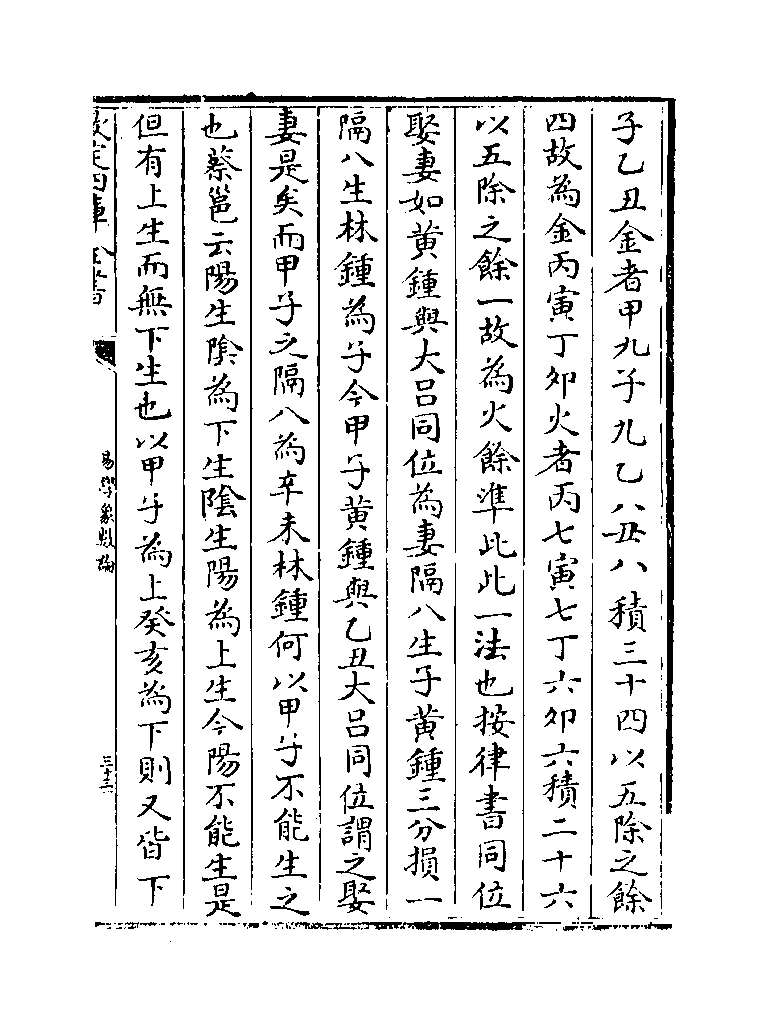 子乙丑金者甲九子九乙八丑八積三十四以五除之餘
四故為金丙寅丁卯火者丙七寅七丁六卯六積二十六
以五除之餘一故為火餘準此此一法也按律書同位
娶妻如黃鍾與大吕同位為妻隔八生子黃鍾三分損一
隔八生林鍾為子今甲子黃鍾與乙丑大吕同位謂之娶
妻是矣而甲子之隔八為辛未林鍾何以甲子不能生之
也蔡邕云陽生陰為下生陰生陽為上生今陽不能生是
但有上生而無下生也以甲子為上癸亥為下則又皆下
欽定四庫全書
易學象數論
三十三